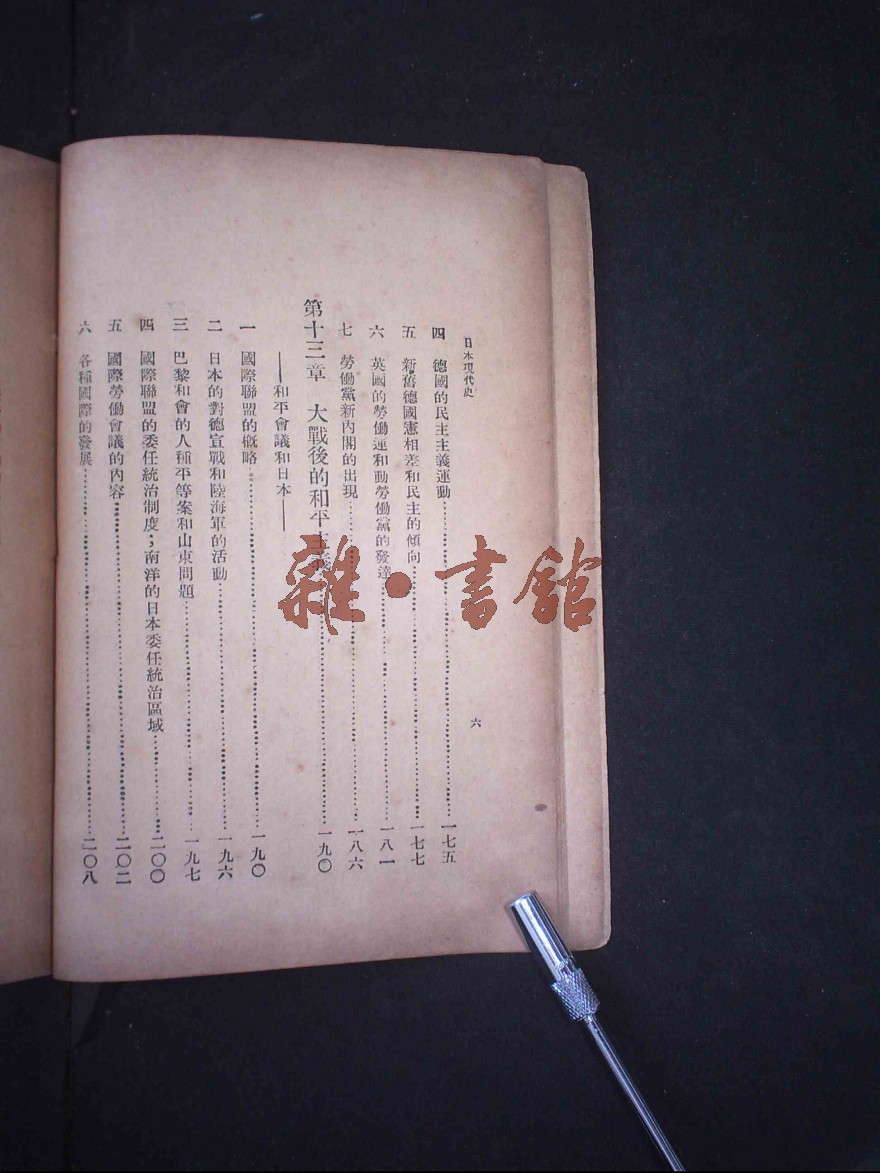 日本現代史
六
四　德國的民主主義運動……一七五
五　新舊德國憲相差和民主的傾向……一七七
六　英國的勞働運和動勞働黨的發達……一八一
七　勞働黨新內閣的出現……一八六
第十三章　大戰後的和平主義……一九〇
——和平會議和日本——
一　國際聯盟的槪略……一九〇
二　日本的對德宣戰和陸海軍的活動……一九六
三　巴黎和會的人種平等案和山東問題……一九七
四　國際聯盟的委任統治制度；南洋的日本委任統治區域……二〇〇
五　國際勞働會議的內容……二〇二
六　各種國際的發展……二〇八
雜·書館